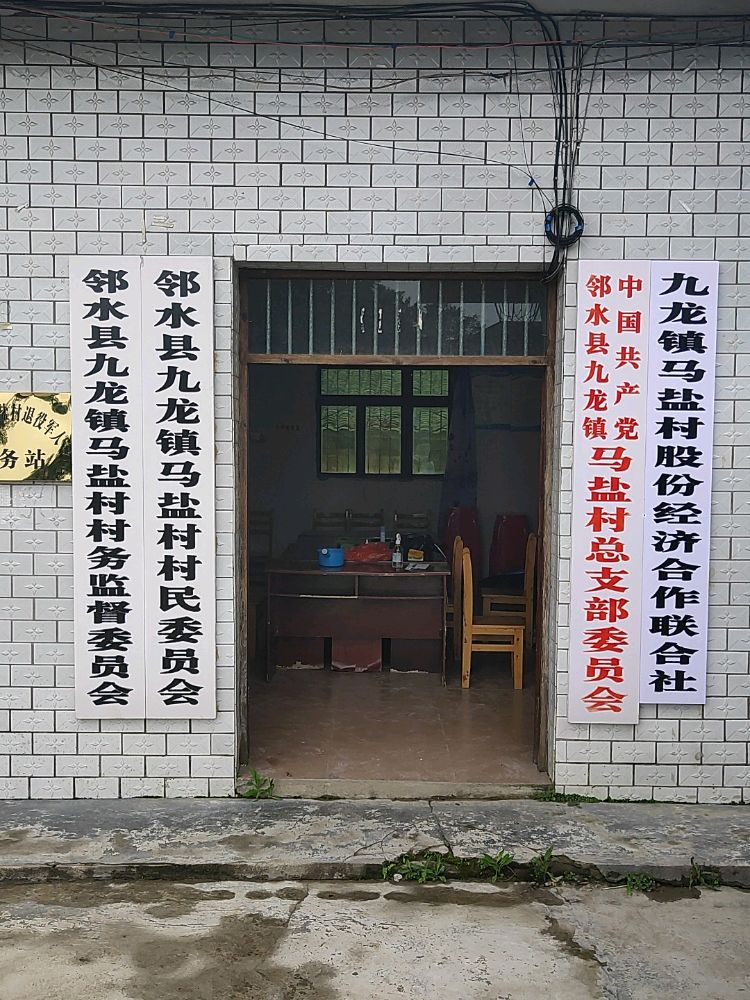 村退役军人
务站
邻水县九龙镇马盐村村务监督委员会
邻水县九龙镇马盐村村民委员会
中国共产党
邻水县九龙镇
马盐村总支部委员会
九龙镇马盐村股份经济合作联合社